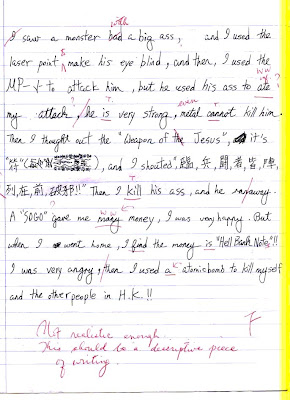 I saw a monster bad a big ass, and I used the
with
laser point make his eye blind, and then, I used the
s
MP-4 to attack him, but he used his ass to ate
my attack, he is very strong, metal cannot kill him.
even
Then I thought out the "Weapon of the Jesus", it's
"符", and I shouted "臨, 兵, 鬪, 者, 皆, 陣,
列, 在, 前, 破邪!!" Then I kill his ass, and he runaway.
A "SOGO" gave me many money, I was very happy. But
when I went home, I find the money is "Hell Bank Note"!!
I was very angry, then I used a atomic bomb to kill myself
and the other people in H.K.!!
Not realistic enough.
This should be a descriptive piece
of writing.
F